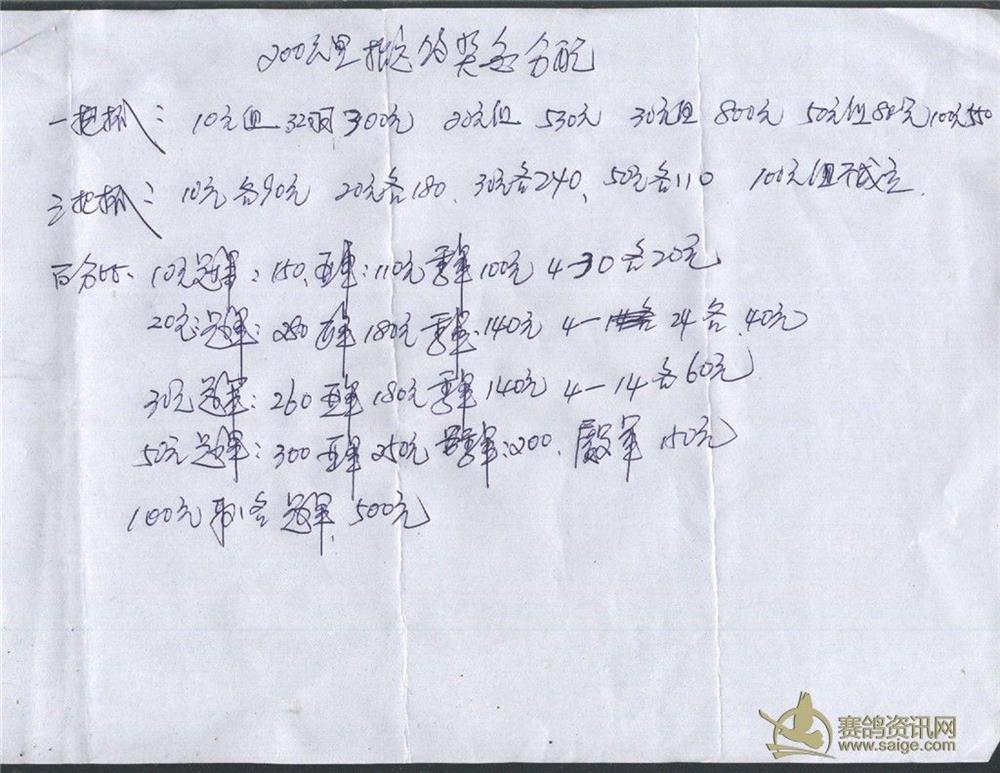 200公里指定的奖金分配
一把抓: 10元组 300元 20元组 530元 30元组 800元 50元组 100元550
三把抓: 10元各90元 20元各180、30元各240、50元各110 100元组不成立.
百分比、10元冠军:150、亚军:110元 季军100元 4-30各20元
20元冠军: 亚军180元 季军:140元 4- 24各40元
30元冠军:260 亚军180元 季军140元 4-14各60元
50元冠军:300 亚军250元 季军:200、殿军150元
100元取1名 冠军、500元
赛鸽资讯网
www.saige.com